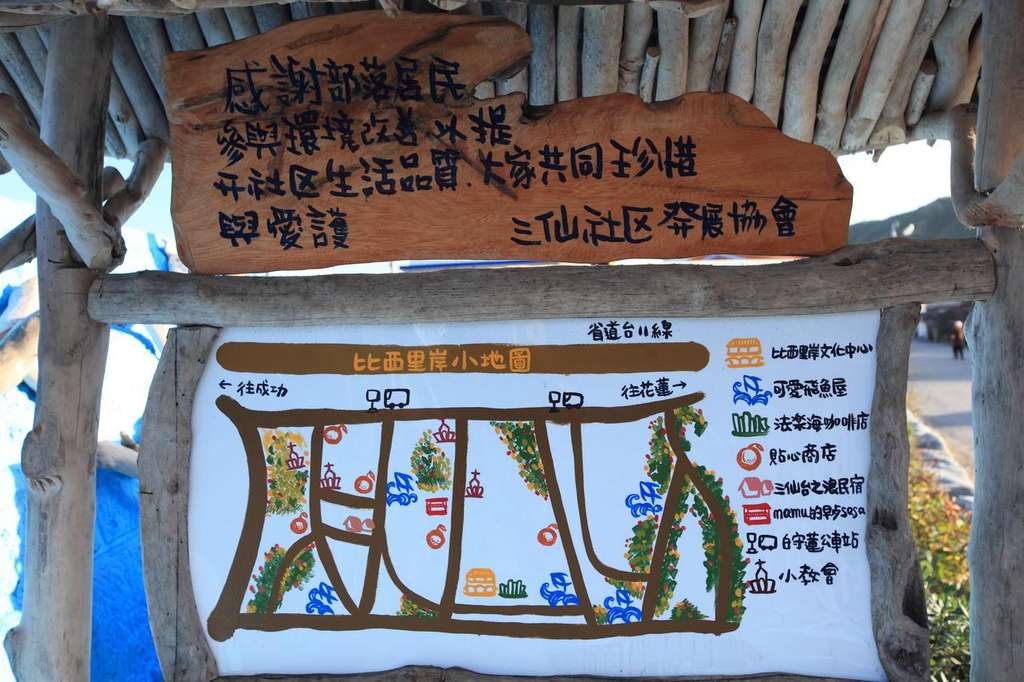 感謝部落居民
參與環境改善以提
升社区生活品質.大家共同珍惜
與愛護 三仙社区發展協會
省道台11線
比西里岸小地圖
←往成功
往花蓮→
比西里岸文化中心
可愛飛魚屋
法楽海咖啡店
貼心商店
三仙台之浪民宿
mamu的早ちsosa
白守蓮公車站
小教會